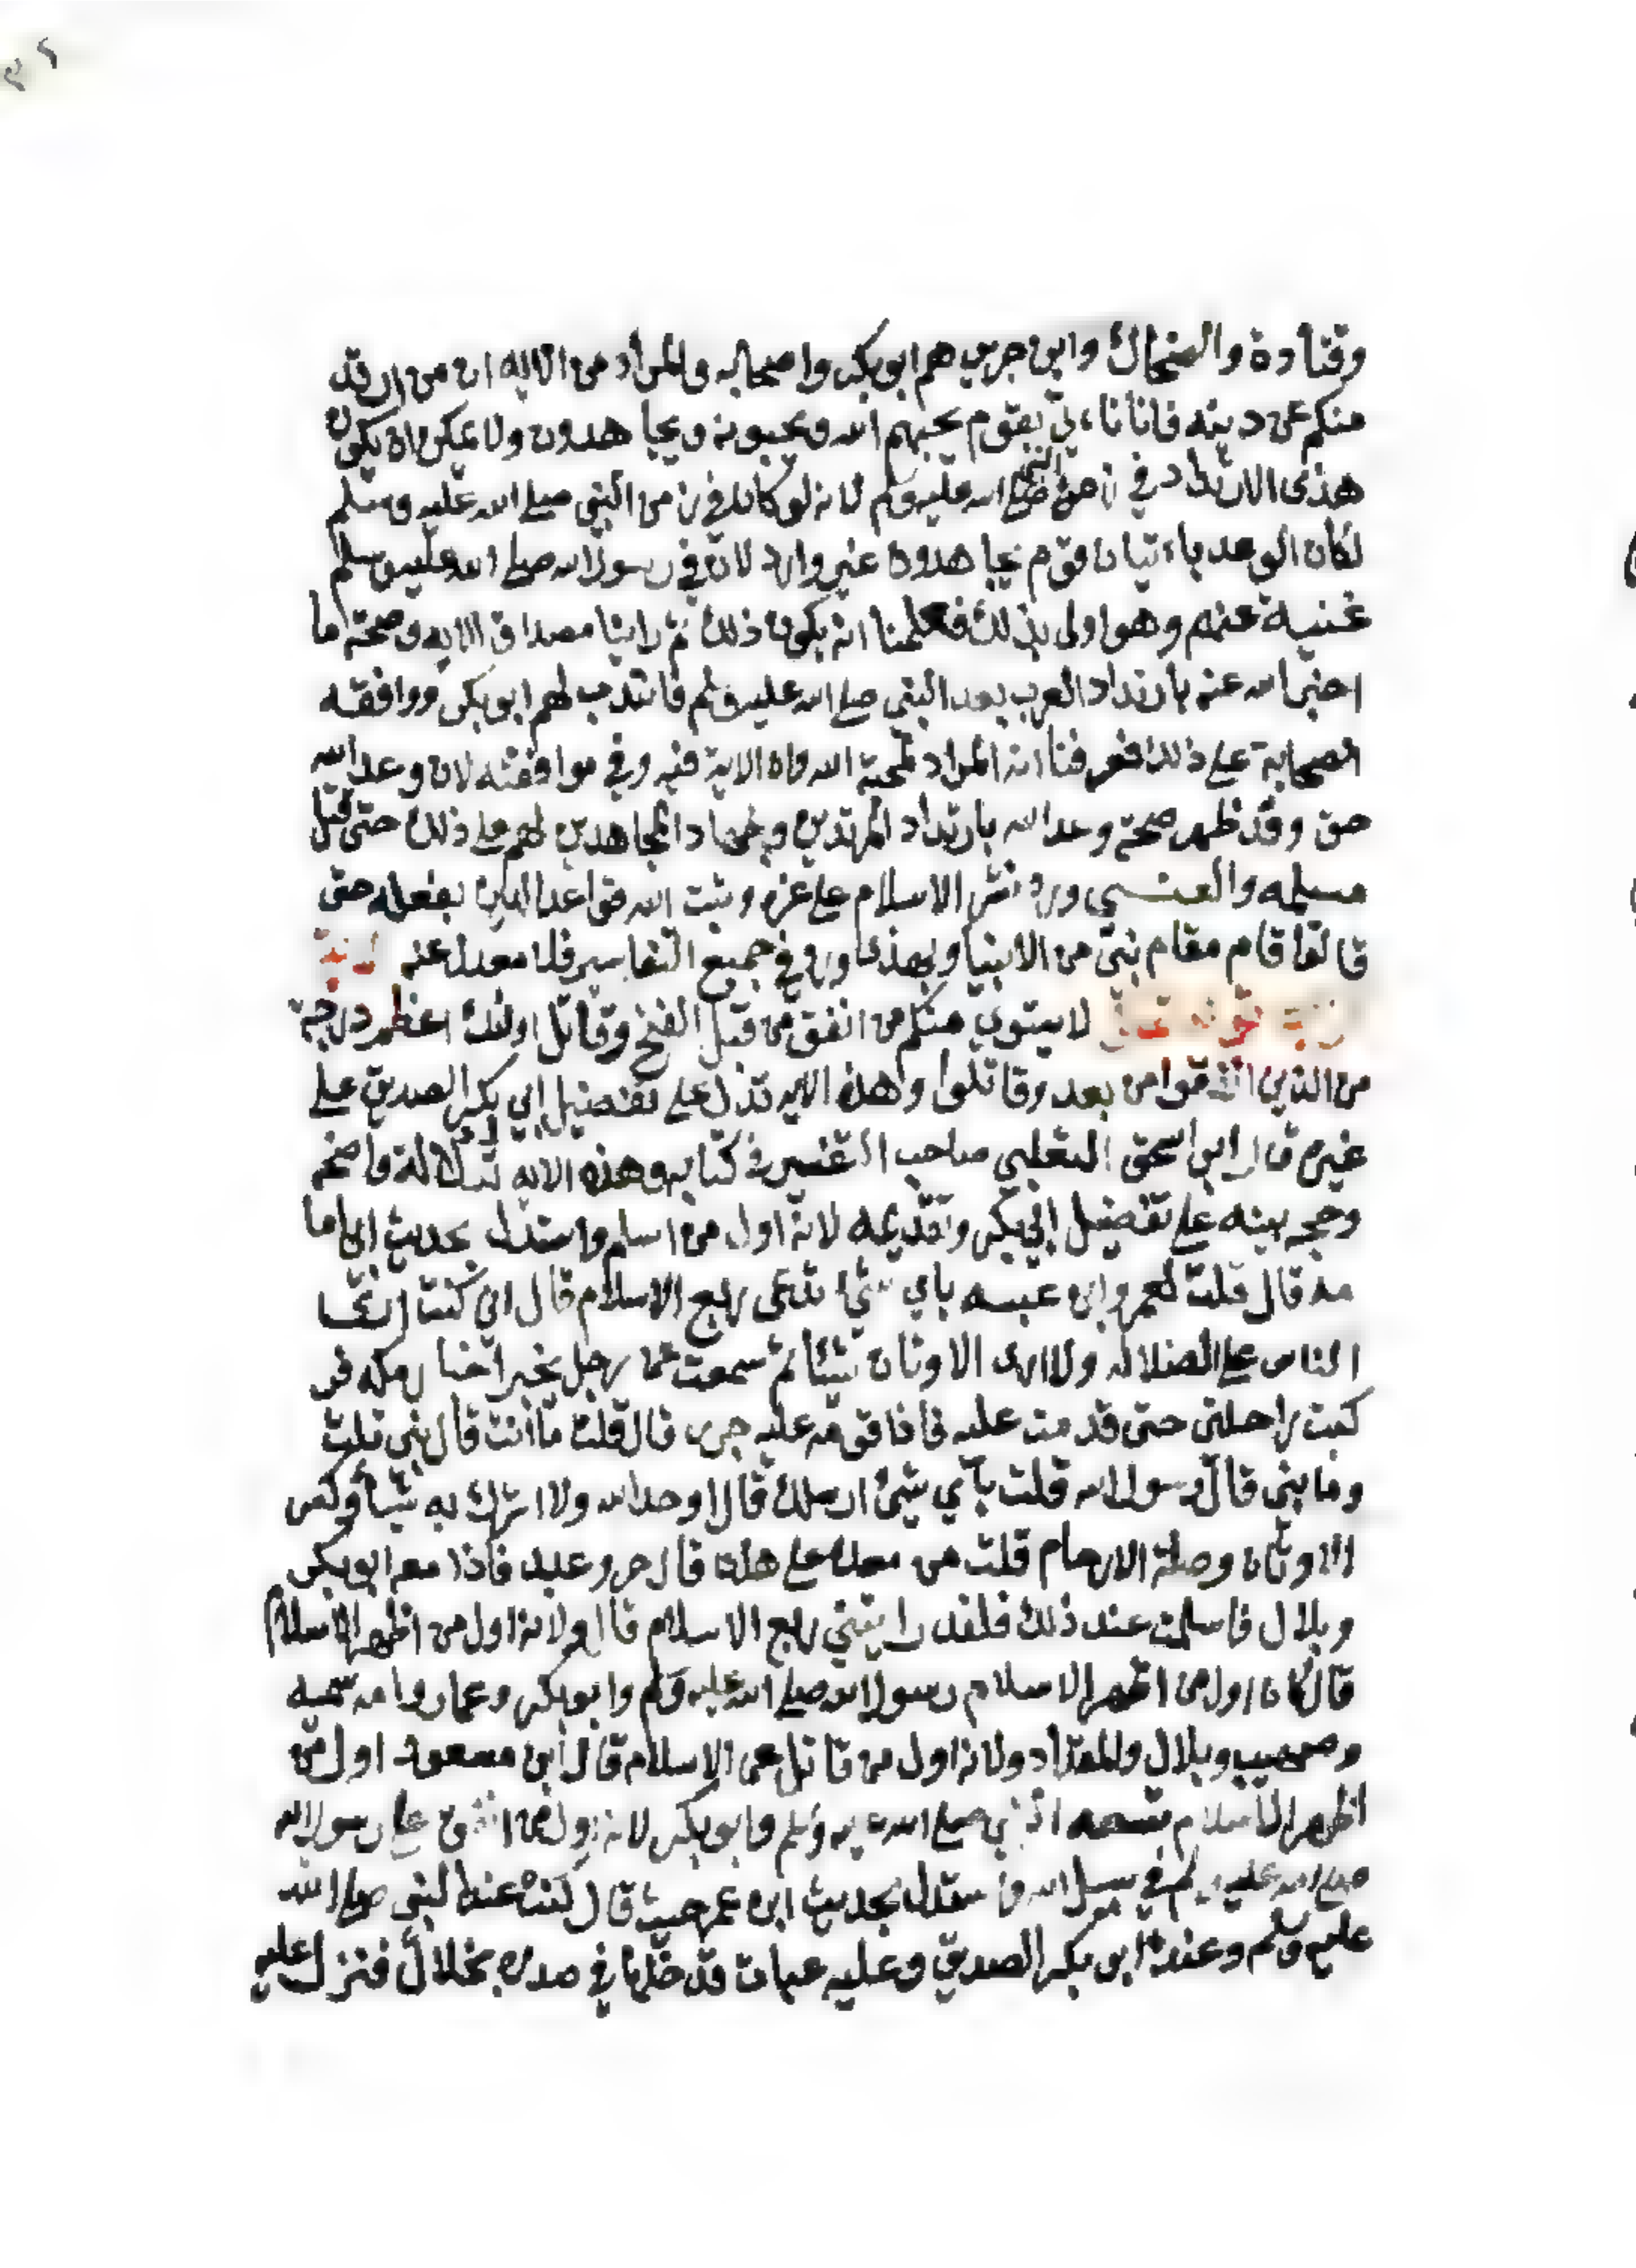 وقتادة والضحاك وابن جريج هم ابو بكر واصحابه والمراد من الايه ان من ارتد
منكم عن دينه فانا نأتي بقوم يحبهم الله ويحبونه ويجاهدون ولا يمكن ان يكون
هذى الارتداد في زمن النبي صلى الله عليه وسلم لانه لو كان في زمن النبي صلى الله عليه وسلم
لكان الوعد باءتيان قوم يجاهدون غير وارد لان في رسول الله صلى الله عليه وسلم
غنيه عنهم وهو اولى بذلك فعلمنا انه يكون ذلك ثم راينا مصداق الايه وصحة ما
اخبر الله عنه بارتداد العرب بعد النبي صلى الله عليه وسلم فانتدب لهم ابو بكر ووافقه
الصحابة على ذلك فعرفنا انه المراد لمحبة الله وان الاية فيه وفي موافقته لان وعد الله
حق وقد ظهر صحة وعد الله بارتداد المرتدين وجهاد المجاهدين لهم على ذلك حتى قتل
مسيلمه والعنسي ورد نشر الاسلام على غره وثبت الله قواعد الدين بفعله حتى
قالوا قام مقام نبي من الانبيا وبهذى ورد في جميع التفاسير فلا معدل عنه
قوله تعالى لا يستوي منكم من انفق من قبل الفتح وقاتل اولئك اعظم درجة
من الذين انفقوا من بعد وقاتلوا وهذه الايه تدل على تفضيل ابي بكر الصديق على
غيره قال ابن اسحق الثعلبي صاحب التفسير في كتابه وهذه الايه دلالة واضحه
وحجه بينه على تفضيل ابي بكر وتقديمه لانه اول من اسلم واستدل بحديث ابي اما
مه قال قلت لعمرو ابن عبسه باي شيء تدعى رابع الاسلام قال اني كنت ارى
الناس على الضلاله ولا ارى الاوثان شيئا ثم سمعت عن رجل يخبر اخبار مكه فر
كبت راحلتي حتى قدمت عليه فاذا قومه عليه جرى قال قلت ما انت قال نبي قلت
وما نبي قال رسول الله قلت بأي شيئ ارسلك قال اوحد الله ولا اشرك به شيأ وكسر
الاوثان وصلة الارحام قلت من معك على هذا قال حر وعبد فاذا معه ابو بكر
وبلال فاسلمت عند ذلك فلقد رايتني رابع الاسلام قال ولانه اول من اظهر الاسلام
قال كان اول من اظهر الاسلام رسول الله صلى الله عليه وسلم وابو بكر وعمار وامه سميه
وصهيب وبلال والمقداد ولانه اول من قاتل عن الاسلام قال ابن مسعود اول من
اظهر الاسلام بسيفه النبي صلى الله عليه وسلم وابو بكر لانه اول من انفق على رسول الله
صلى الله عليه وسلم في سبيل الله واستدل بحديث ابن عمر حيث قال كنت عند النبي صلى الله
عليه وسلم وعنده ابو بكر الصديق وعليه عبات قد خلها في صدره بخلال فنزل عليه